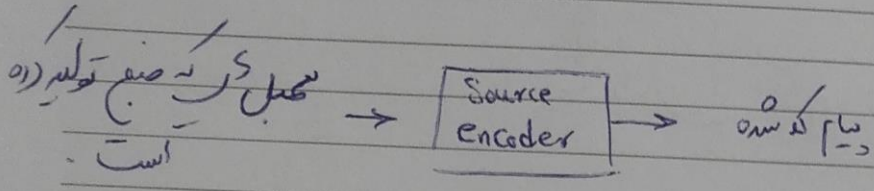 سمبلی که منبع تولید کرده
است.
→
Source
encoder
→
پیام کد شده